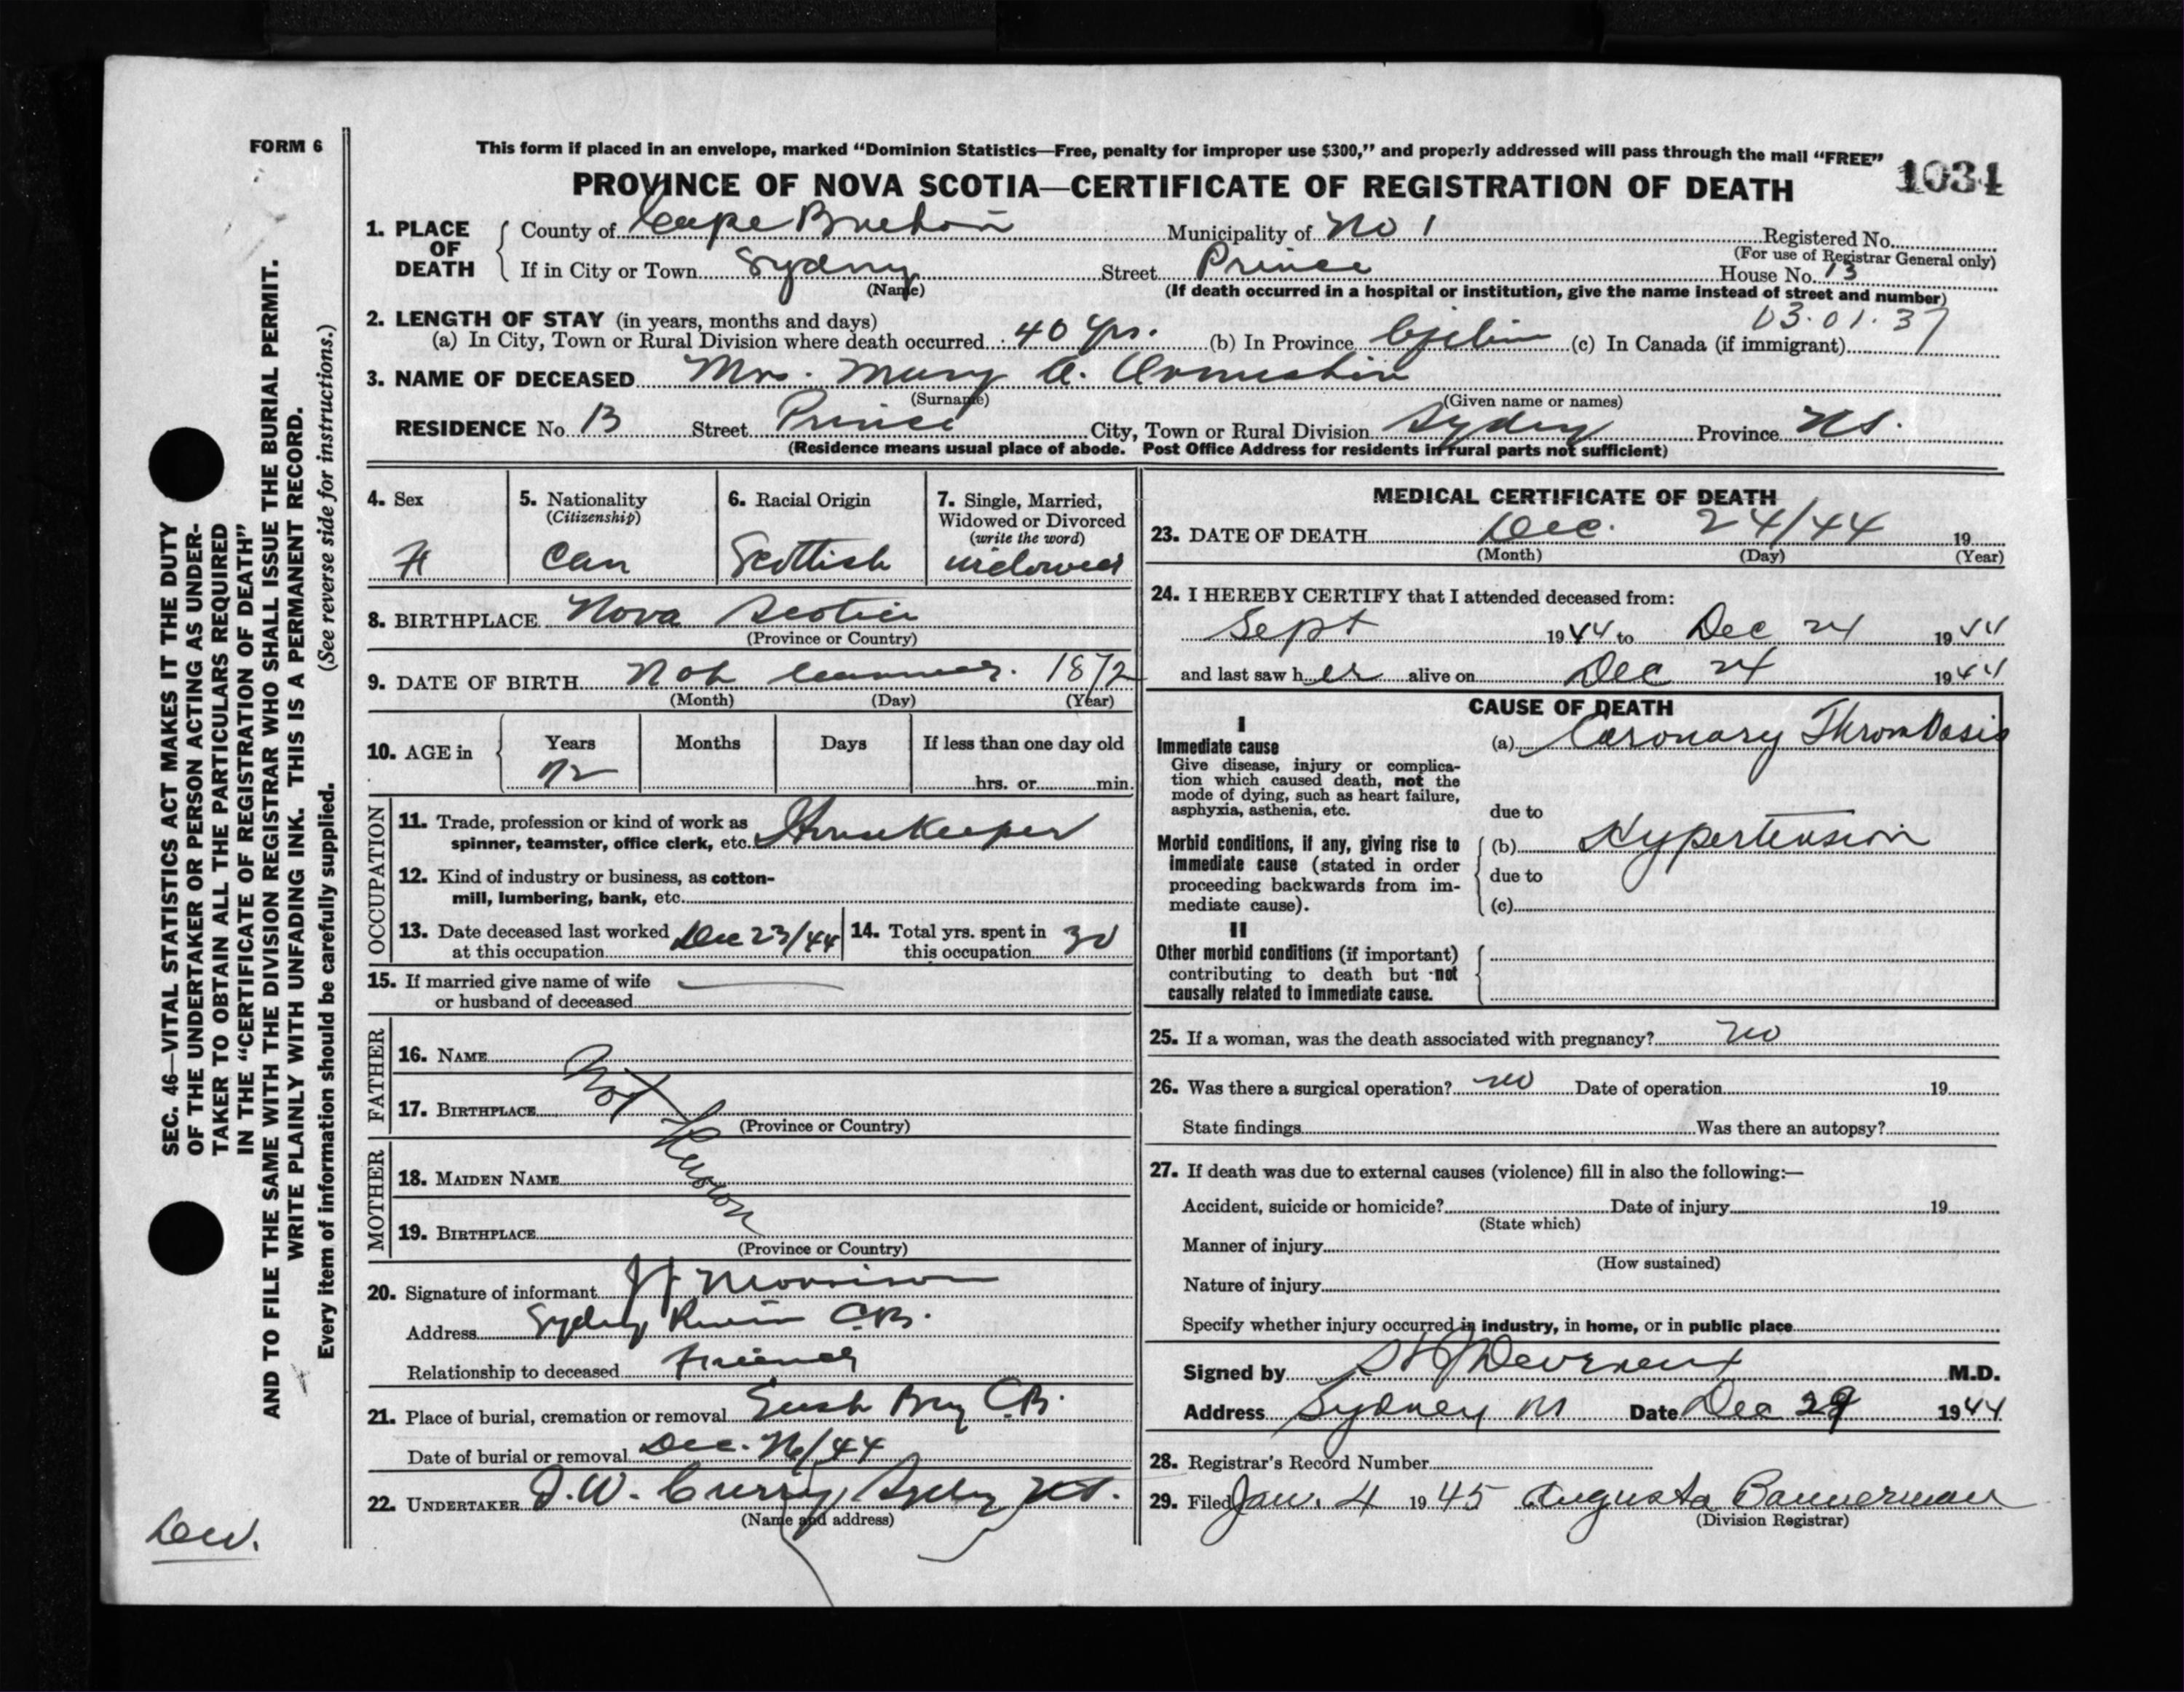 FORM 6
This form if placed in an envelope, marked “Dominion Statistics—Free, penalty for improper use $300,” and properly addressed will pass through the mail “FREE”
PROVINCE OF NOVA SCOTIA—CERTIFICATE OF REGISTRATION OF DEATH 1034
1. PLACE OF DEATH
County of Cape Breton Municipality of No 1 Registered No.
(For use of Registrar General only)
If in City or Town Sydney Street Prince House No. 13
(Name) (If death occurred in a hospital or institution, give the name instead of street and number)
03.01.37
2. LENGTH OF STAY (in years, months and days)
(a) In City, Town or Rural Division where death occurred 40 yrs. (b) In Province (c) In Canada (if immigrant)
3. NAME OF DECEASED Mrs. Mary A.
(Surname) (Given name or names)
RESIDENCE No. 13 Street Prince City, Town or Rural Division Sydney Province N.S.
(Residence means usual place of abode. Post Office Address for residents in rural parts not sufficient)
4. Sex
F
5. Nationality
(Citizenship)
Can
6. Racial Origin
Scottish
7. Single, Married,
Widowed or Divorced
(write the word)
widowed
8. BIRTHPLACE Nova Scotia
(Province or Country)
9. DATE OF BIRTH Not 1872
(Month) (Day) (Year)
10. AGE in
Years Months Days If less than one day old
72 hrs. or min.
OCCUPATION
11. Trade, profession or kind of work as
spinner, teamster, office clerk, etc. Housekeeper
12. Kind of industry or business, as cotton-
mill, lumbering, bank, etc.
13. Date deceased last worked
at this occupation Dec 23/44
14. Total yrs. spent in
this occupation 30
15. If married give name of wife
or husband of deceased —
FATHER
16. NAME
17. BIRTHPLACE
(Province or Country)
Not Known
MOTHER
18. MAIDEN NAME
19. BIRTHPLACE
(Province or Country)
20. Signature of informant Morrison
Address Sydney River C.B.
Relationship to deceased Friend
21. Place of burial, cremation or removal Bay C.B.
Date of burial or removal Dec. 26/44
22. UNDERTAKER W. Curry, Sydney N.S.
(Name and address)
MEDICAL CERTIFICATE OF DEATH
23. DATE OF DEATH Dec. 24/44 19
(Month) (Day) (Year)
24. I HEREBY CERTIFY that I attended deceased from:
Sept 1944 to Dec 24 1944
and last saw her alive on Dec 24 1944
CAUSE OF DEATH
I
Immediate cause
Give disease, injury or complica-
tion which caused death, not the
mode of dying, such as heart failure,
asphyxia, asthenia, etc.
(a) Coronary Thrombosis
due to
Morbid conditions, if any, giving rise to
immediate cause (stated in order
proceeding backwards from im-
mediate cause).
(b) Hypertension
due to
(c)
II
Other morbid conditions (if important)
contributing to death but not
causally related to immediate cause.
25. If a woman, was the death associated with pregnancy? no
26. Was there a surgical operation? no Date of operation 19
State findings Was there an autopsy?
27. If death was due to external causes (violence) fill in also the following:—
Accident, suicide or homicide? Date of injury 19
(State which)
Manner of injury
(How sustained)
Nature of injury
Specify whether injury occurred in industry, in home, or in public place
Signed by Devereux M.D.
Address Sydney Date Dec 29 1944
28. Registrar's Record Number
29. Filed Jan. 4 1945 Augusta Bannerman
(Division Registrar)
SEC. 46—VITAL STATISTICS ACT MAKES IT THE DUTY
OF THE UNDERTAKER OR PERSON ACTING AS UNDER-
TAKER TO OBTAIN ALL THE PARTICULARS REQUIRED
IN THE “CERTIFICATE OF REGISTRATION OF DEATH”
AND TO FILE THE SAME WITH THE DIVISION REGISTRAR WHO SHALL ISSUE THE BURIAL PERMIT.
WRITE PLAINLY WITH UNFADING INK. THIS IS A PERMANENT RECORD.
Every item of information should be carefully supplied. (See reverse side for instructions.)